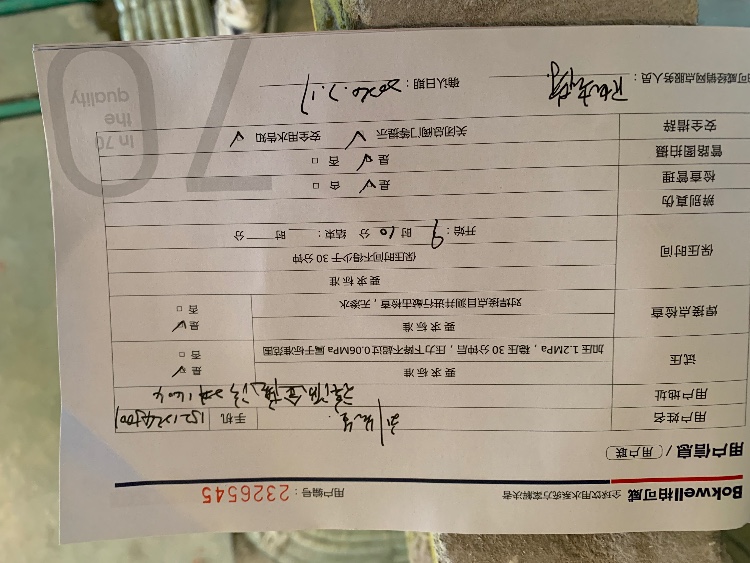 Bokwell柏可威 全球饮用水系统方案解决者 用户编号：2326545
用户信息 / （用户联）
用户姓名 手机
用户地址
试压 要求标准 是 ✓
加压 1.2MPa，稳压 30 分钟后，压力下降不超过0.06MPa 属于标准范围 否 □
焊接点检查 要求标准 是 ✓
对焊接点目测并进行敲击检查，无渗水 否 □
保压时间 要求标准
保压时间不得少于 30 分钟
开始：9 时 10 分 结束： 时 分
辨别真伪
检查管理 是 ✓ 否 □
管路图拍摄 是 ✓ 否 □
安全措辞 关闭总阀门等提示 ✓ 安全用水告知 ✓
柏可威经销网点服务人员： 确认日期：
In 70
the
quality
70